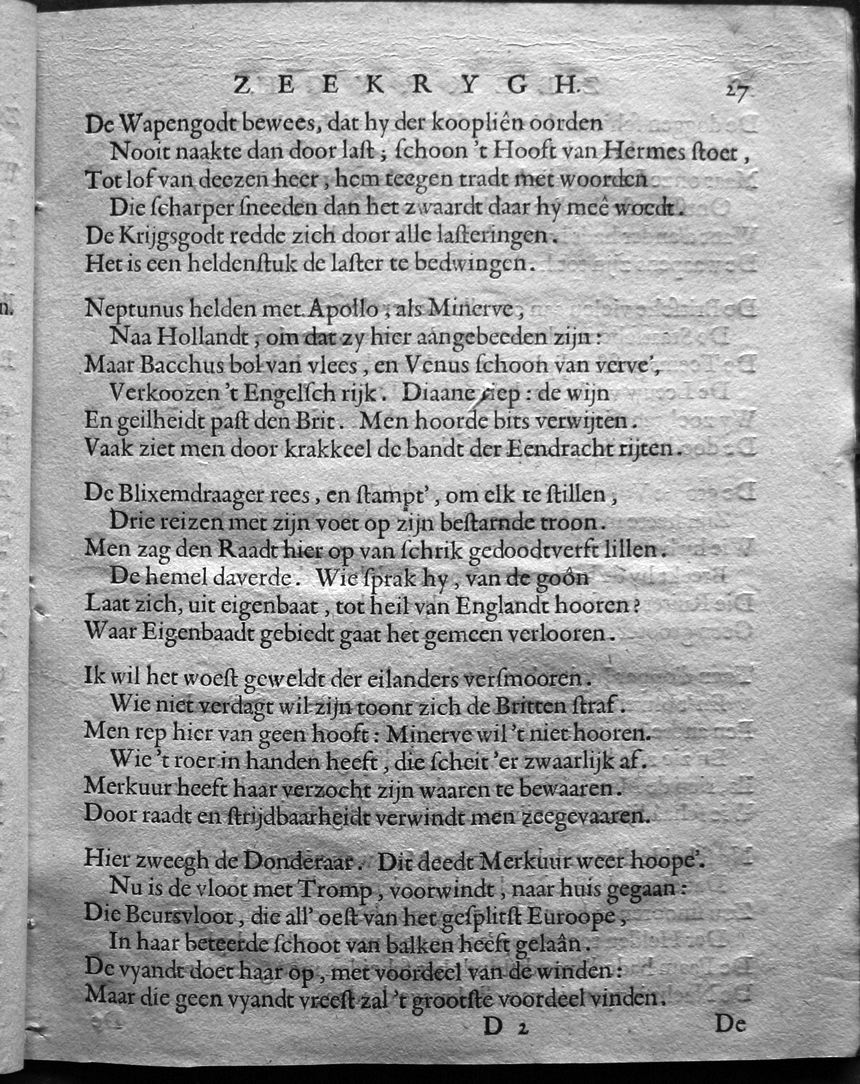 ZEEKRYGH. 27
De Wapengodt bewees, dat hy der koopliên oorden
Nooit naakte dan door last; schoon 't Hooft van Hermes stoet,
Tot lof van deezen heer, hem teegen tradt met woorden
Die scharper sneeden dan het zwaardt daar hy meê woedt.
De Krijgsgodt redde zich door alle lasteringen.
Het is een heldenstuk de laster te bedwingen.
Neptunus helden met Apollo, als Minerve,
Naa Hollandt, om dat zy hier aangebeeden zijn:
Maar Bacchus bol van vlees, en Venus schoon van verve',
Verkoozen 't Engelsch rijk. Diaane riep: de wijn
En geilheidt past den Brit. Men hoorde bits verwijten.
Vaak ziet men door krakkeel de bandt der Eendracht rijten.
De Blixemdraager rees, en stampt', om elk te stillen,
Drie reizen met zijn voet op zijn bestarnde troon.
Men zag den Raadt hier op van schrik gedoodtverft lillen.
De hemel daverde. Wie sprak hy, van de goôn
Laat zich, uit eigenbaat, tot heil van Englandt hooren?
Waar Eigenbaadt gebiedt gaat het gemeen verlooren.
Ik wil het woest geweldt der eilanders versmooren.
Wie niet verdagt wil zijn toont zich de Britten straf.
Men rep hier van geen hooft: Minerve wil 't niet hooren.
Wie 't roer in handen heeft, die scheit 'er zwaarlijk af.
Merkuur heeft haar verzocht zijn waaren te bewaaren.
Door raadt en strijdbaarheidt verwindt men zeegevaaren.
Hier zweegh de Donderaar. Dit deedt Merkuur weer hoope'.
Nu is de vloot met Tromp, voorwindt, naar huis gegaan:
Die Beursvloot, die all' oest van het gesplitst Euroope,
In haar beteerde schoot van balken heeft gelaân.
De vyandt doet haar op, met voordeel van de winden:
Maar die geen vyandt vreest zal 't grootste voordeel vinden.
D 2 De